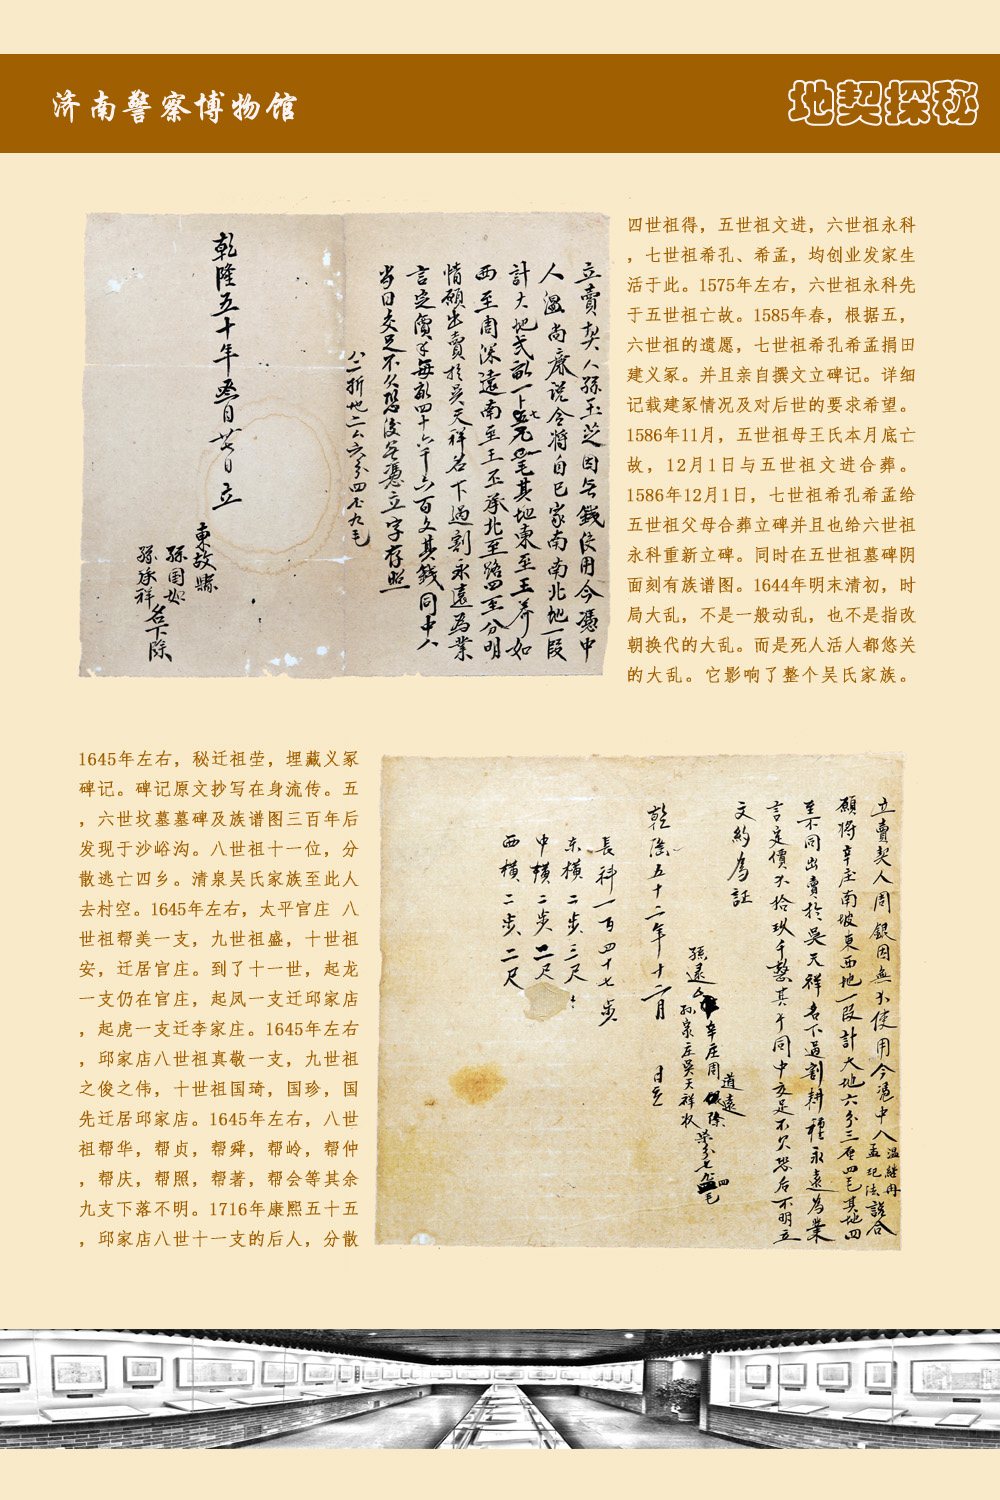 济南警察博物馆
地契探秘
立賣契人孫玉芝因無錢使用今憑中
人溫尚廉说合将自己家南南北地一段
計大地弍畝一卜五七元四毛其地東至王养如
西至周深遠南至王丕承北至路四至分明
情願出賣於吳天祥名下過割永遠為業
言定價錢每畝四十六千六百文其錢同中人
当日交足不欠恐後無憑立字存照
乾隆五十年
立
東故縣
四世祖得，五世祖文进，六世祖永科
，七世祖希孔、希孟，均创业发家生
活于此。1575年左右，六世祖永科先
于五世祖亡故。1585年春，根据五，
六世祖的遗愿，七世祖希孔希孟捐田
建义冢。并且亲自撰文立碑记。详细
记载建冢情况及对后世的要求希望。
1586年11月，五世祖母王氏本月底亡
故，12月1日与五世祖文进合葬。
1586年12月1日，七世祖希孔希孟给
五世祖父母合葬立碑并且也给六世祖
永科重新立碑。同时在五世祖墓碑阴
面刻有族谱图。1644年明末清初，时
局大乱，不是一般动乱，也不是指改
朝换代的大乱。而是死人活人都悠关
的大乱。它影响了整个吴氏家族。
1645年左右，秘迁祖茔，埋藏义冢
碑记。碑记原文抄写在身流传。五
，六世坟墓墓碑及族谱图三百年后
发现于沙峪沟。八世祖十一位，分
散逃亡四乡。清泉吴氏家族至此人
去村空。1645年左右，太平官庄 八
世祖帮美一支，九世祖盛，十世祖
安，迁居官庄。到了十一世，起龙
一支仍在官庄，起凤一支迁邱家店
，起虎一支迁李家庄。1645年左右
，邱家店八世祖真敬一支，九世祖
之俊之伟，十世祖国琦，国珍，国
先迁居邱家店。1645年左右，八世
祖帮华，帮贞，帮舜，帮岭，帮仲
，帮庆，帮照，帮著，帮会等其余
九支下落不明。1716年康熙五十五
，邱家店八世十一支的后人，分散
立賣契人周銀因無钱使用今憑中人
願将辛庄南坡東西地一段計大地六分三厘四毛其地四
至不同出賣於吳天祥名下過割耕種永遠為業
言定價大拾玖千整其钱同中交足不欠恐后不明立
文約為証
乾隆五十二年十二月
長科一百四十七步
东横二步三尺
中横二步二尺
西横二步二尺